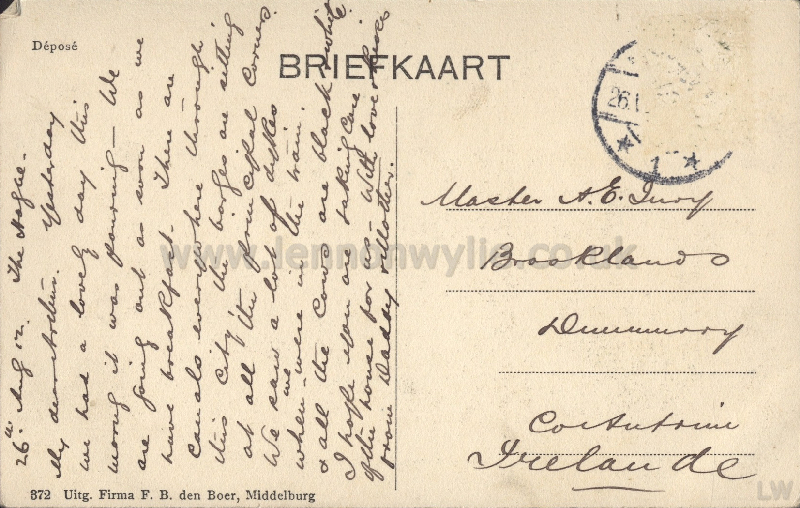 Déposé
BRIEFKAART
26th Aug 12. The Hague -
My dear Yesterday
we had a lovely day this
morng it was pouring - We
are going out as soon as we
have breakfast. There are
canals everywhere through
this city, the barges are sitting
at all the principal corners.
We saw a lot of dykes
when we were in the train.
& all the cows are black & white.
I hope you are taking care
of the house for us. With love & kisses
from Daddy & Mother.
26.
1
Master A. E.
Brooklands
Dunmurry
Co Antrim
Irelande
372 Uitg. Firma F. B. den Boer, Middelburg
www.lennonwylie.co.uk
LW